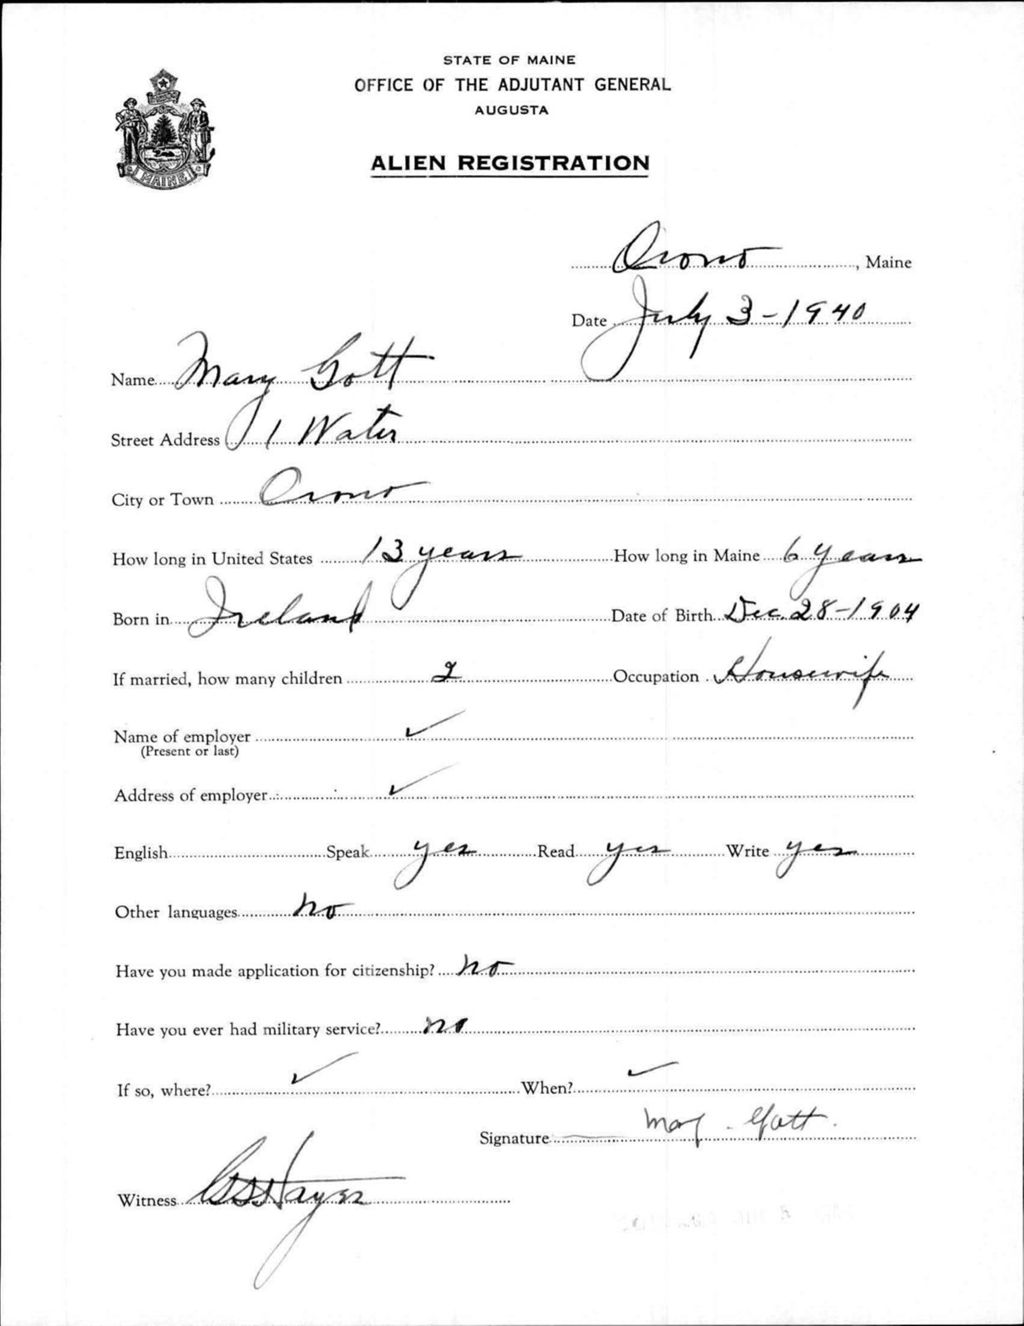 STATE OF MAINE
OFFICE OF THE ADJUTANT GENERAL
AUGUSTA
MAINE
ALIEN REGISTRATION
Orono, Maine
Date July 3-1940
Name Mary Gott
Street Address 1 Water
City or Town Orono
How long in United States 13 years How long in Maine 6 years
Born in Ireland Date of Birth Dec. 28-1904
If married, how many children 2 Occupation Housewife
Name of employer ✓
(Present or last)
Address of employer ✓
English Speak yes Read yes Write yes
Other languages no
Have you made application for citizenship? no
Have you ever had military service? no
If so, where? ✓ When? ✓
Signature Mary Gott
Witness Hayes